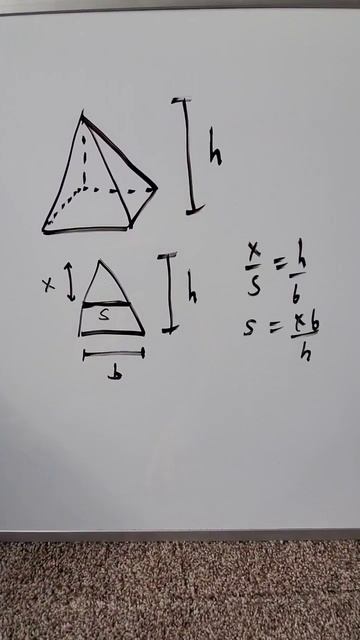 h
x
s
h
b
x/s = h/b
s = xb/h